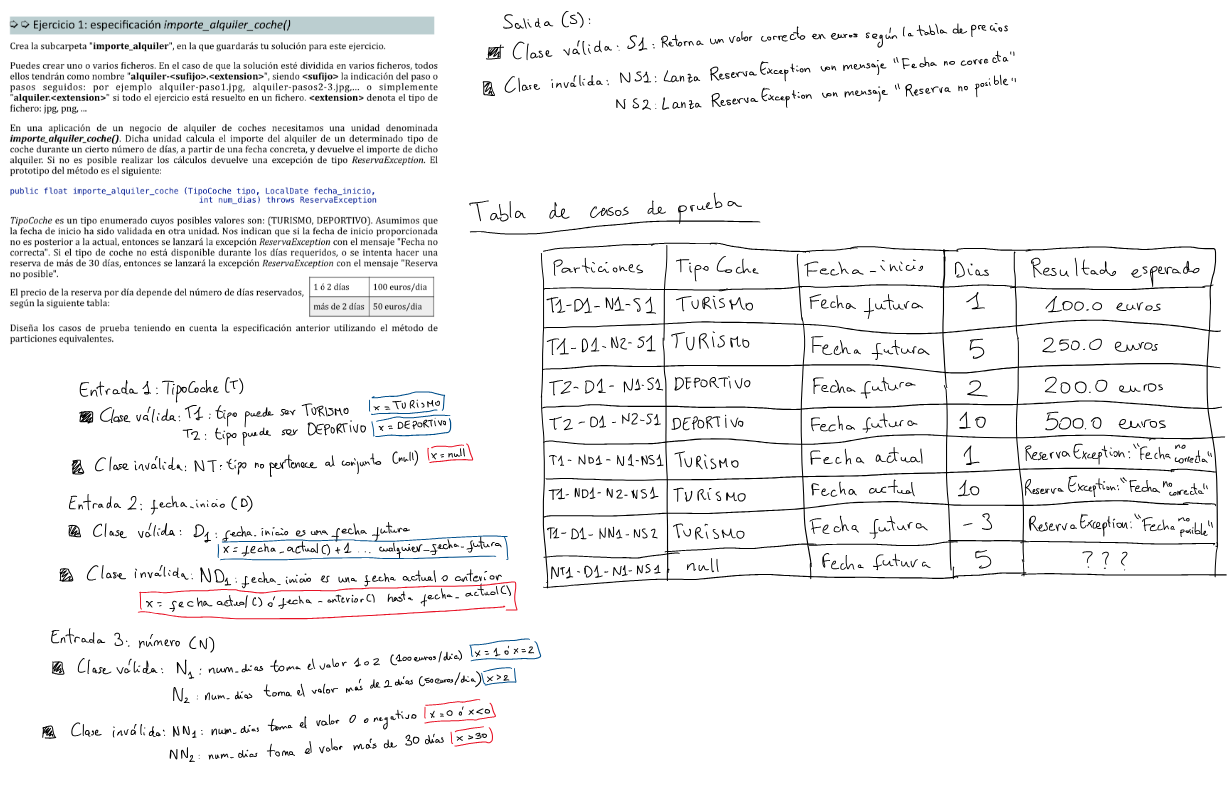 ➪ ➪ Ejercicio 1: especificación importe_alquiler_coche()
Crea la subcarpeta "importe_alquiler", en la que guardarás tu solución para este ejercicio.
Puedes crear uno o varios ficheros. En el caso de que la solución esté dividida en varios ficheros, todos
ellos tendrán como nombre "alquiler-<sufijo>.<extension>", siendo <sufijo> la indicación del paso o
pasos seguidos: por ejemplo alquiler-paso1.jpg, alquiler-pasos2-3.jpg,... o simplemente
"alquiler.<extension>" si todo el ejercicio está resuelto en un fichero. <extension> denota el tipo de
fichero: jpg, png, ...
En una aplicación de un negocio de alquiler de coches necesitamos una unidad denominada
importe_alquiler_coche(). Dicha unidad calcula el importe del alquiler de un determinado tipo de
coche durante un cierto número de días, a partir de una fecha concreta, y devuelve el importe de dicho
alquiler. Si no es posible realizar los cálculos devuelve una excepción de tipo ReservaException. El
prototipo del método es el siguiente:
public float importe_alquiler_coche (TipoCoche tipo, LocalDate fecha_inicio,
int num_dias) throws ReservaException
TipoCoche es un tipo enumerado cuyos posibles valores son: (TURISMO, DEPORTIVO). Asumimos que
la fecha de inicio ha sido validada en otra unidad. Nos indican que si la fecha de inicio proporcionada
no es posterior a la actual, entonces se lanzará la excepción ReservaException con el mensaje "Fecha no
correcta". Si el tipo de coche no está disponible durante los días requeridos, o se intenta hacer una
reserva de más de 30 días, entonces se lanzará la excepción ReservaException con el mensaje "Reserva
no posible".
El precio de la reserva por día depende del número de días reservados,
según la siguiente tabla:
1 ó 2 días 100 euros/dia
más de 2 días 50 euros/dia
Diseña los casos de prueba teniendo en cuenta la especificación anterior utilizando el método de
particiones equivalentes.
Entrada 1: TipoCoche (T)
Clase válida: T1: tipo puede ser TURISMO x = TURISMO
T2: tipo puede ser DEPORTIVO x = DEPORTIVO
Clase inválida: NT: tipo no pertenece al conjunto (null) x = null
Entrada 2: fecha_inicio (D)
Clase válida: D1: fecha_inicio es una fecha futura
x = fecha_actual() + 1 ... cualquier_fecha_futura
Clase inválida: ND1: fecha_inicio es una fecha actual o anterior
x = fecha actual() ó fecha-anterior() hasta fecha_actual()
Entrada 3: número (N)
Clase válida: N1: num_dias toma el valor 1 o 2 (100 euros/dia) x = 1 ó x = 2
N2: num_dias toma el valor más de 2 dias (50 euros/dia) x > 2
Clase inválida: NN1: num_dias toma el valor 0 o negativo x = 0 ó x < 0
NN2: num_dias toma el valor más de 30 días x > 30
Salida (S):
Clase válida: S1: Retorna un valor correcto en euros según la tabla de precios
Clase inválida: NS1: Lanza ReservaException con mensaje "Fecha no correcta"
NS2: Lanza ReservaException con mensaje "Reserva no posible"
Tabla de casos de prueba
Particiones Tipo Coche Fecha-inicio Dias Resultado esperado
T1-D1-N1-S1 TURISMO Fecha futura 1 100.0 euros
T1-D1-N2-S1 TURISMO Fecha futura 5 250.0 euros
T2-D1-N1-S1 DEPORTIVO Fecha futura 2 200.0 euros
T2-D1-N2-S1 DEPORTIVO Fecha futura 10 500.0 euros
T1-ND1-N1-NS1 TURISMO Fecha actual 1 ReservaException: "Fecha no correcta"
T1-ND1-N2-NS1 TURISMO Fecha actual 10 ReservaException: "Fecha no correcta"
T1-D1-NN1-NS2 TURISMO Fecha futura -3 ReservaException: "Fecha no posible"
NT1-D1-N1-NS1 null Fecha futura 5 ???